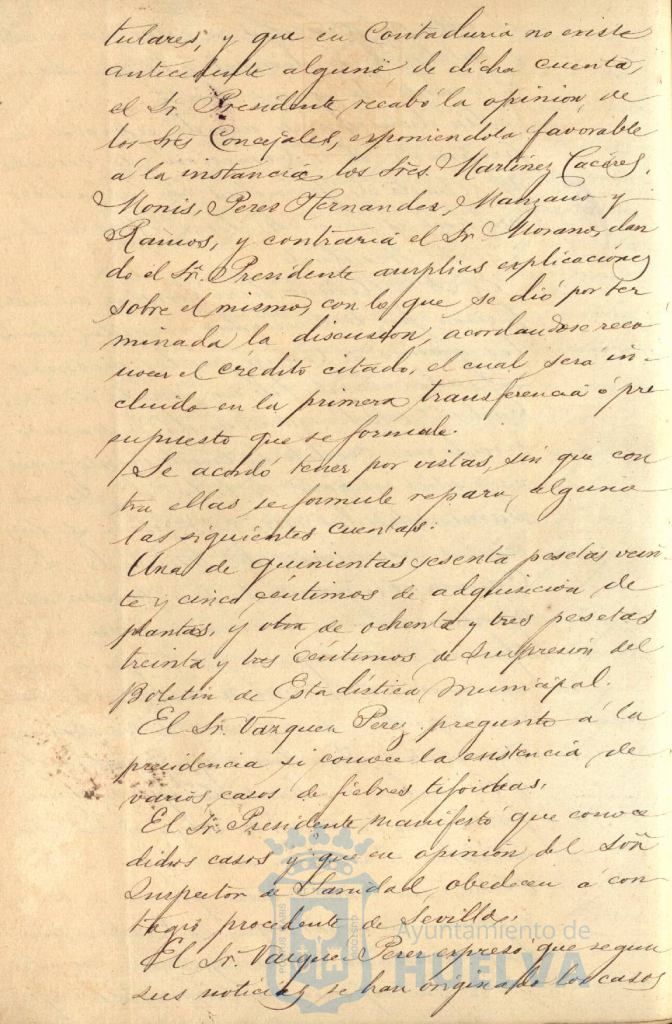 tulares, y que en Contaduria no existe
antecedente alguno de dicha cuenta,
el Sr. Presidente recabó la opinion de
los Sres Concejales, exponiendola favorable
á la instancia los Sres. Martinez Caceres,
Monis, Perez Hernandez, Manzano y
Ramos, y contraria el Sr. Morano, dan
do el Sr. Presidente amplias explicaciones
sobre el mismo, con lo que se dió por ter
minada la discusion, acordandose reco
nocer el crédito citado, el cual será in-
cluido en la primera transferencia ó pre
supuesto que se formule.
Se acordó tener por vistas, sin que con
tra ellas se formule reparo alguno
las siguientes cuentas:
Una de quinientas sesenta pesetas vein-
te y cinco céntimos de adquisición de
plantas, y otra de ochenta y tres pesetas
treinta y tres céntimos de impresión del
Boletin de Estadística Municipal.
El Sr. Vazquez Perez preguntó á la
presidencia si conoce la existencia de
varios casos de fiebres tifoideas.
El Sr. Presidente manifestó que conoce
dichos casos y que en opinion del Señ
Inspector de Sanidad obedecen á con
tagio procedente de Sevilla.
El Sr. Vazquez Perez expresó que segun
sus noticias se han originado los casos
Ayuntamiento de
HUELVA